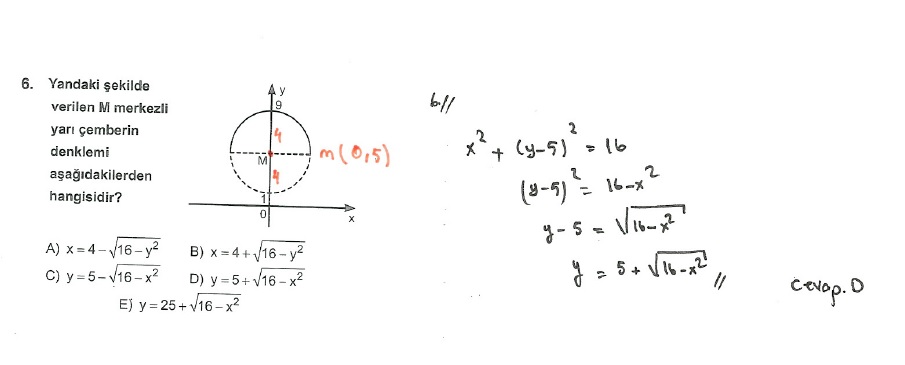 6. Yandaki şekilde
verilen M merkezli
yarı çemberin
denklemi
aşağıdakilerden
hangisidir?
y
9
4
M
m(0,5)
4
1
0
x
A) x = 4 − √16 − y²
B) x = 4 + √16 − y²
C) y = 5 − √16 − x²
D) y = 5 + √16 − x²
E) y = 25 + √16 − x²
6.//
x² + (y−5)² = 16
(y−5)² = 16−x²
y − 5 = √16−x²
y = 5 + √16−x² //
Cevap. D